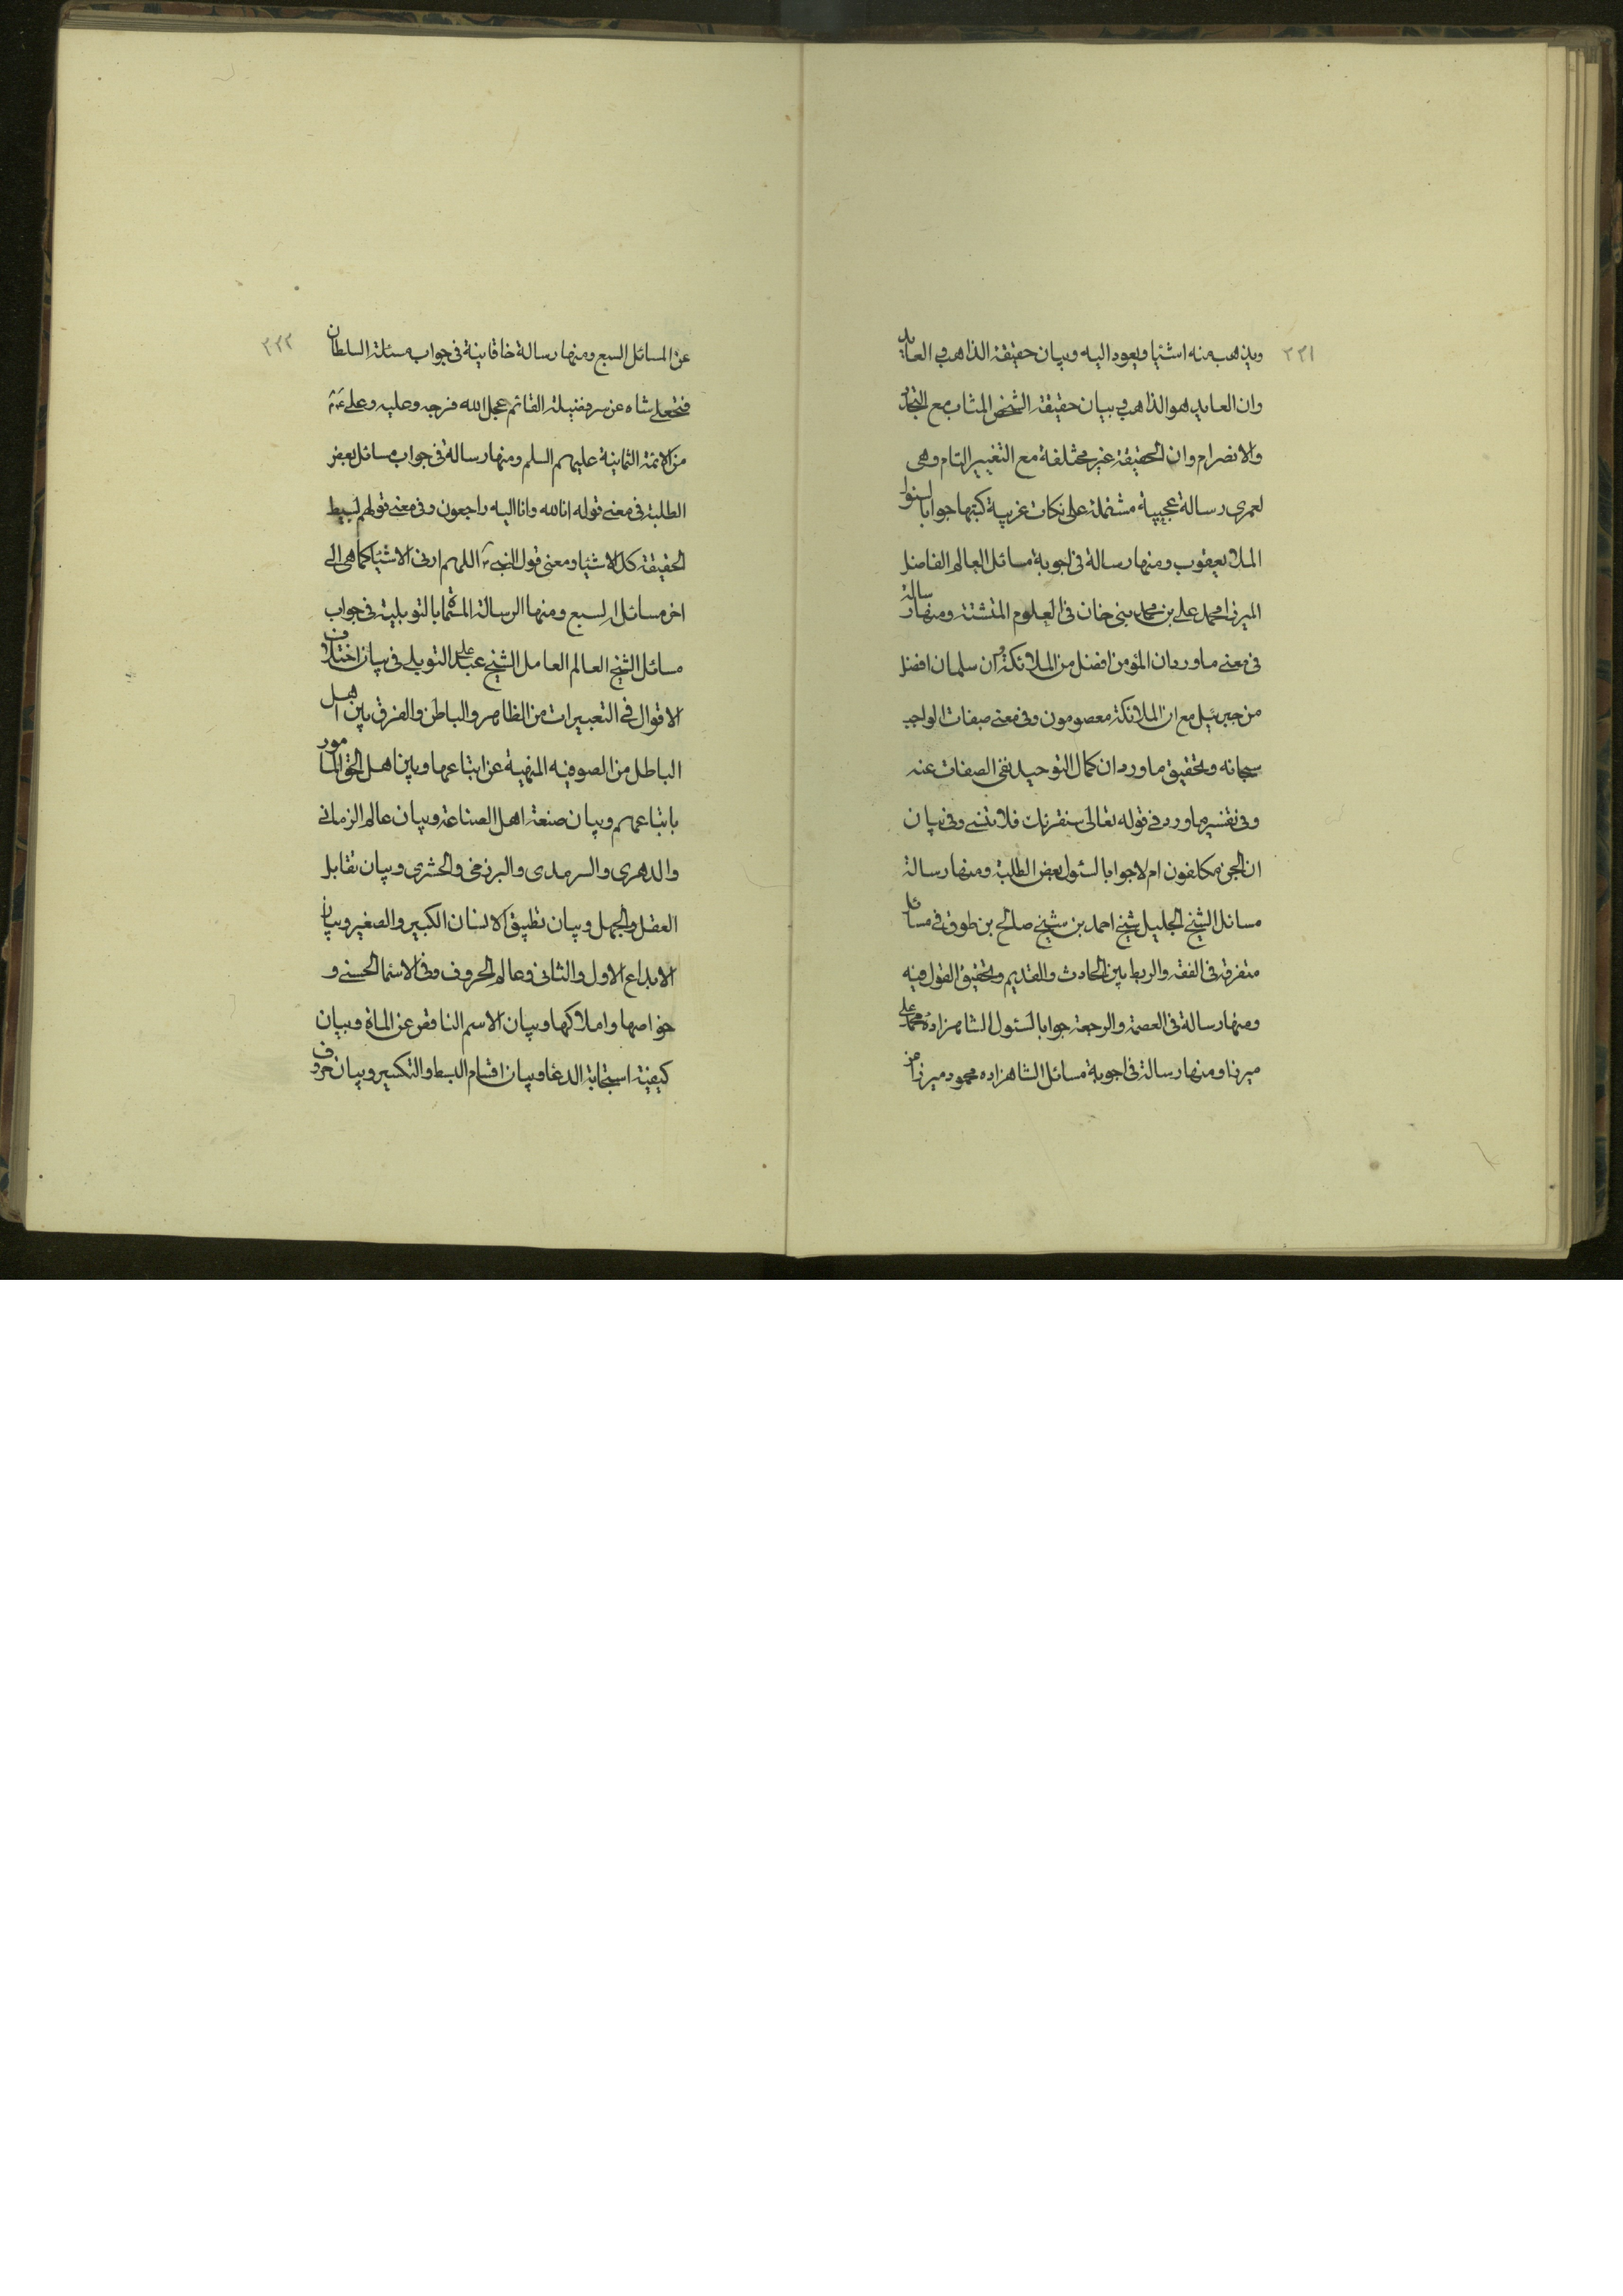 ٢٢١
ويذهب منه اشيا ويعود اليه وبيان حقيقة الذاهب والعايد
وان العايد هو الذاهب وبيان حقيقة الشخص المثاب مع التجدد
والانصرام وان الحقيقة غير مختلفة مع التغيير التام وهى
لعمرى رسالة عجيبة مشتملة على نكات غريبة كتبتها جوابا لسئوال
الملا يعقوب ومنها رسالة فى اجوبة مسائل العالم الفاضل
الميرزا محمد على بن محمد نبى خان فى العلوم المتشتتة ومنها رسالة
فى معنى ما ورد ان المؤمن افضل من الملائكة وان سلمان افضل
من جبرئيل مع ان الملائكة معصومون وفى معنى صفات الواجب
سبحانه وتحقيق ما ورد ان كمال التوحيد نفى الصفات عنه
وفى تفسير ما ورد فى قوله تعالى سنقرئك فلا تنسى وفى بيان
ان الجن مكلفون ام لا جوابا لسئول بعض الطلبة ومنها رسالة
مسائل الشيخ الجليل شيخ احمد بن شيخ صالح بن طوق فى مسائل
متفرقة فى الفقه والربط بين الحادث والقديم وتحقيق القول فيه
ومنها رسالة فى العصمة والرجعة جوابا لسئول الشاهزاده محمد على
ميرزا ومنها رسالة فى اجوبة مسائل الشاهزاده محمود ميرزا من
٢٢٢
عن المسائل السبع ومنها رسالة خاقانية فى جواب مسئلة السلطان
فتحعلى شاه عن سر فضيلة القائم عجل الله فرجه وعليه وعلى
من الائمة الثمانية عليهم السلم ومنها رسالة فى جواب مسائل بعض
الطلبة فى معنى قوله انا لله وانا اليه راجعون وفى معنى قولهم بسيط
الحقيقة كل الاشيا ومعنى قول النبى اللهم ارنى الاشيا كما هى الى
اخر مسائل السبع ومنها الرسالة المسماة بالتوبلية فى جواب
مسائل الشيخ العالم العامل الشيخ عبد على التوبلى فى بيان اختلاف
الاقوال فى التعبيرات من الظاهر والباطن والفرق بين اهل
الباطل من الصوفيه المنهية عن اتباعها وبين اهل الحق المامور
باتباعهم وبيان صنعة اهل الصناعة وبيان عالم الزمانى
والدهرى والسرمدى والبرزخى والحشرى وبيان تقابل
العقل والجهل وبيان تطبيق الانسان الكبير والصغير وبيان
الابداع الاول والثانى وعالم الحروف وفى الاسما الحسنى و
خواصها واملاكها وبيان الاسم الناقص عن الماة وبيان
كيفية استجابة الدعا وبيان اقسام البسط والتكسير وبيان حروف